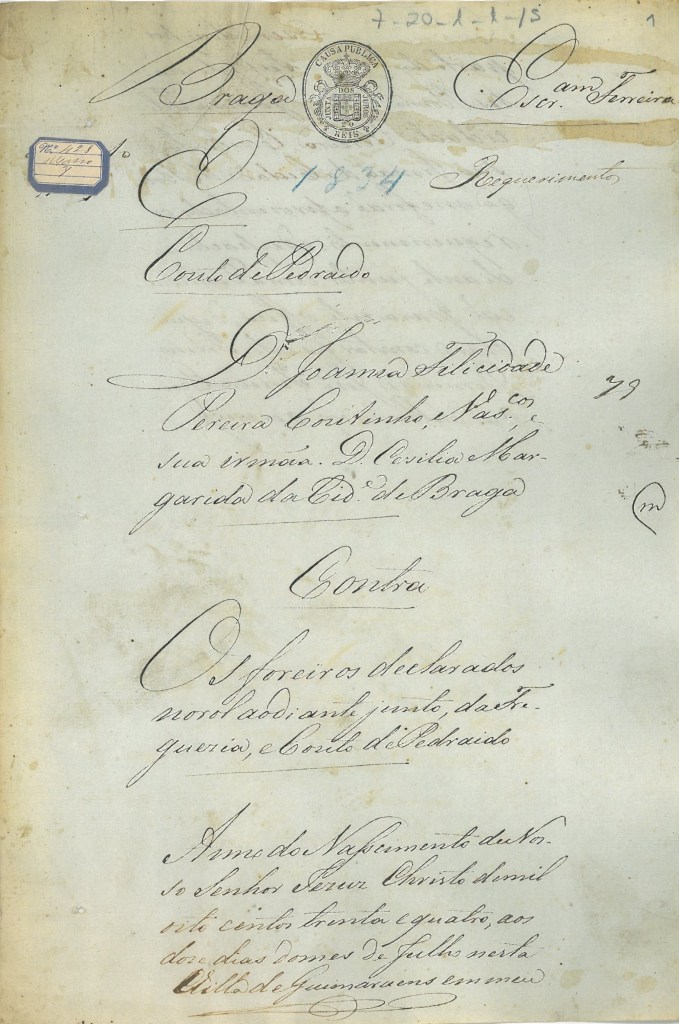 7-20-1-1-15
1
Braga
CAUSA PUBLICA
JUNTA DOS JUROS
20
REIS
Escr.am Ferreira
Nº 428
1834
Requerimento
E
Couto de Pedraido
D. Joanna Felicidade
Pereira Coutinho, Vas.cos, e
sua irmãa. D. Cesilia Mar-
garida da Cid.e de Braga
79
(m
Contra
Os foreiros declarados
no rol aodiante junto, da Fre-
guezia, e Couto de Pedraido
Anno do Nascimento de Nos-
so Senhor Jezuz Christo demil
oito centos trinta e quatro, aos
doze dias domes de Julho nesta
Villa de Guimaraens em meu